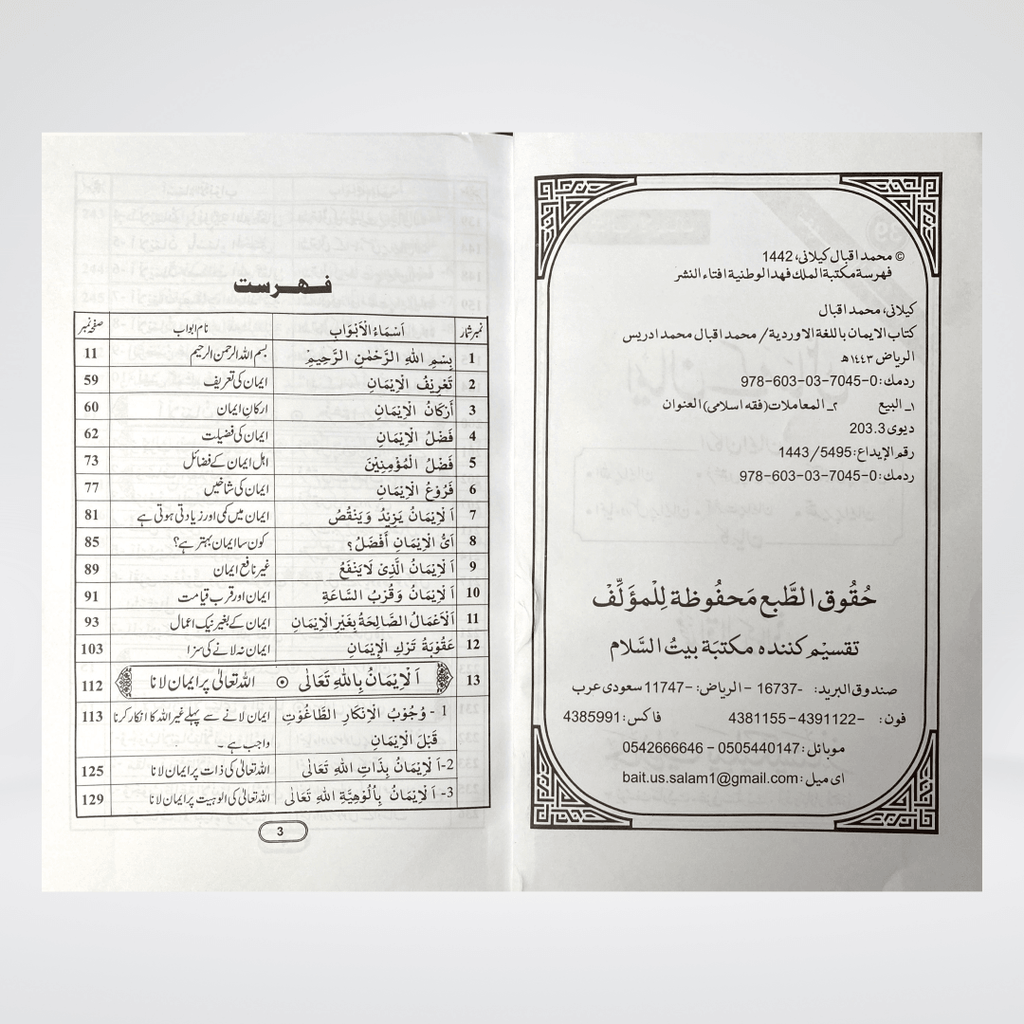 © محمد اقبال کیلانی، 1442
فهرسة مكتبة الملك فهد الوطنية افتاء النشر
کیلانی، محمد اقبال
كتاب الايمان باللغة الاوردية/ محمد اقبال محمد ادريس
الرياض ١٤٤٣ھ
ردمك: 0-7045-03-603-978
١۔ البيع ٢۔ المعاملات (فقه اسلامی) العنوان
ديوى 203.3
رقم الإيداع: 1443/5495
ردمك: 0-7045-03-603-978
حُقُوق الطَّبع مَحفُوظة لِلْمؤَلِّفْ
تقسیم کننده مکتبَة بیتُ السَّلام
صندوق البريد: -16737 – الرياض: -11747 سعودی عرب
فون: –4391122 – 4381155 فاکس: 4385991
موبائل: 0505440147 – 0542666646
ای میل: bait.us.salam1@gmail.com
فہرست
نمبر شمار اَسْمَاءُ الْاَبْوَاب نام ابواب صفحہ نمبر
1 بِسْمِ اللهِ الرَّحْمٰنِ الرَّحِيْمِ بسم اللہ الرحمن الرحیم 11
2 تَعْرِيْفُ الْاِيْمَانِ ایمان کی تعریف 59
3 أَرْكَانُ الْاِيْمَانِ ارکان ایمان 60
4 فَضْلُ الْاِيْمَانِ ایمان کی فضیلت 62
5 فَضْلُ الْمُؤْمِنِيْنَ اہل ایمان کے فضائل 73
6 فَرُوْعُ الْاِيْمَانِ ایمان کی شاخیں 77
7 اَلْاِيْمَانُ يَزِيْدُ وَيَنْقُصُ ایمان میں کمی اور زیادتی ہوتی ہے 81
8 اَىُّ الْاِيْمَانِ أَفْضَلُ؟ کون سا ایمان بہتر ہے؟ 85
9 اَلْاِيْمَانُ الَّذِىْ لَايَنْفَعُ غیر نافع ایمان 89
10 اَلْاِيْمَانُ وَقُرْبُ السَّاعَةِ ایمان اور قرب قیامت 91
11 اَلْاَعْمَالُ الصَّالِحَةُ بِغَيْرِ الْاِيْمَانِ ایمان کے بغیر نیک اعمال 93
12 عَقُوْبَةُ تَرْكِ الْاِيْمَانِ ایمان نہ لانے کی سزا 103
13 اَلْاِيْمَانُ بِاللهِ تَعَالٰى ⊙ اللہ تعالیٰ پر ایمان لانا 112
1 - وُجُوْبُ الْاِنْكَارِ الطَّاغُوْتِ ایمان لانے سے پہلے غیر اللہ کا انکار کرنا 113
قَبْلَ الْاِيْمَانِ واجب ہے ۔
2- اَلْاِيْمَانُ بِذَاتِ اللهِ تَعَالٰى اللہ تعالیٰ کی ذات پر ایمان لانا 125
3- اَلْاِيْمَانُ بِاُلُوْهِيَّةِ اللهِ تَعَالٰى اللہ تعالیٰ کی الوہیت پر ایمان لانا 129
3